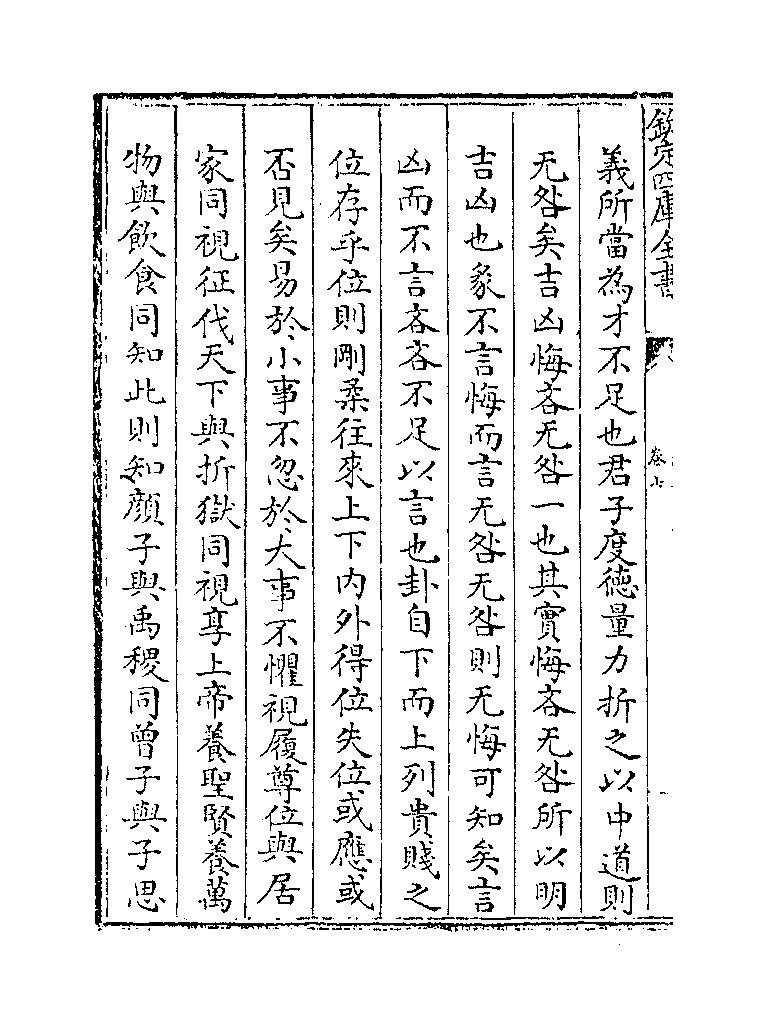 欽定四庫全書
卷七
義所當為才不足也君子度徳量力折之以中道則
无咎矣吉凶悔吝无咎一也其實悔吝无咎所以明
吉凶也彖不言悔而言无咎无咎則无悔可知矣言
凶而不言吝吝不足以言也卦自下而上列貴賤之
位存乎位則剛柔往來上下内外得位失位或應或
否見矣易於小事不忽於大事不懼視履尊位與居
家同視征伐天下與折獄同視享上帝養聖賢養萬
物與飲食同知此則知顔子與禹稷同曾子與子思